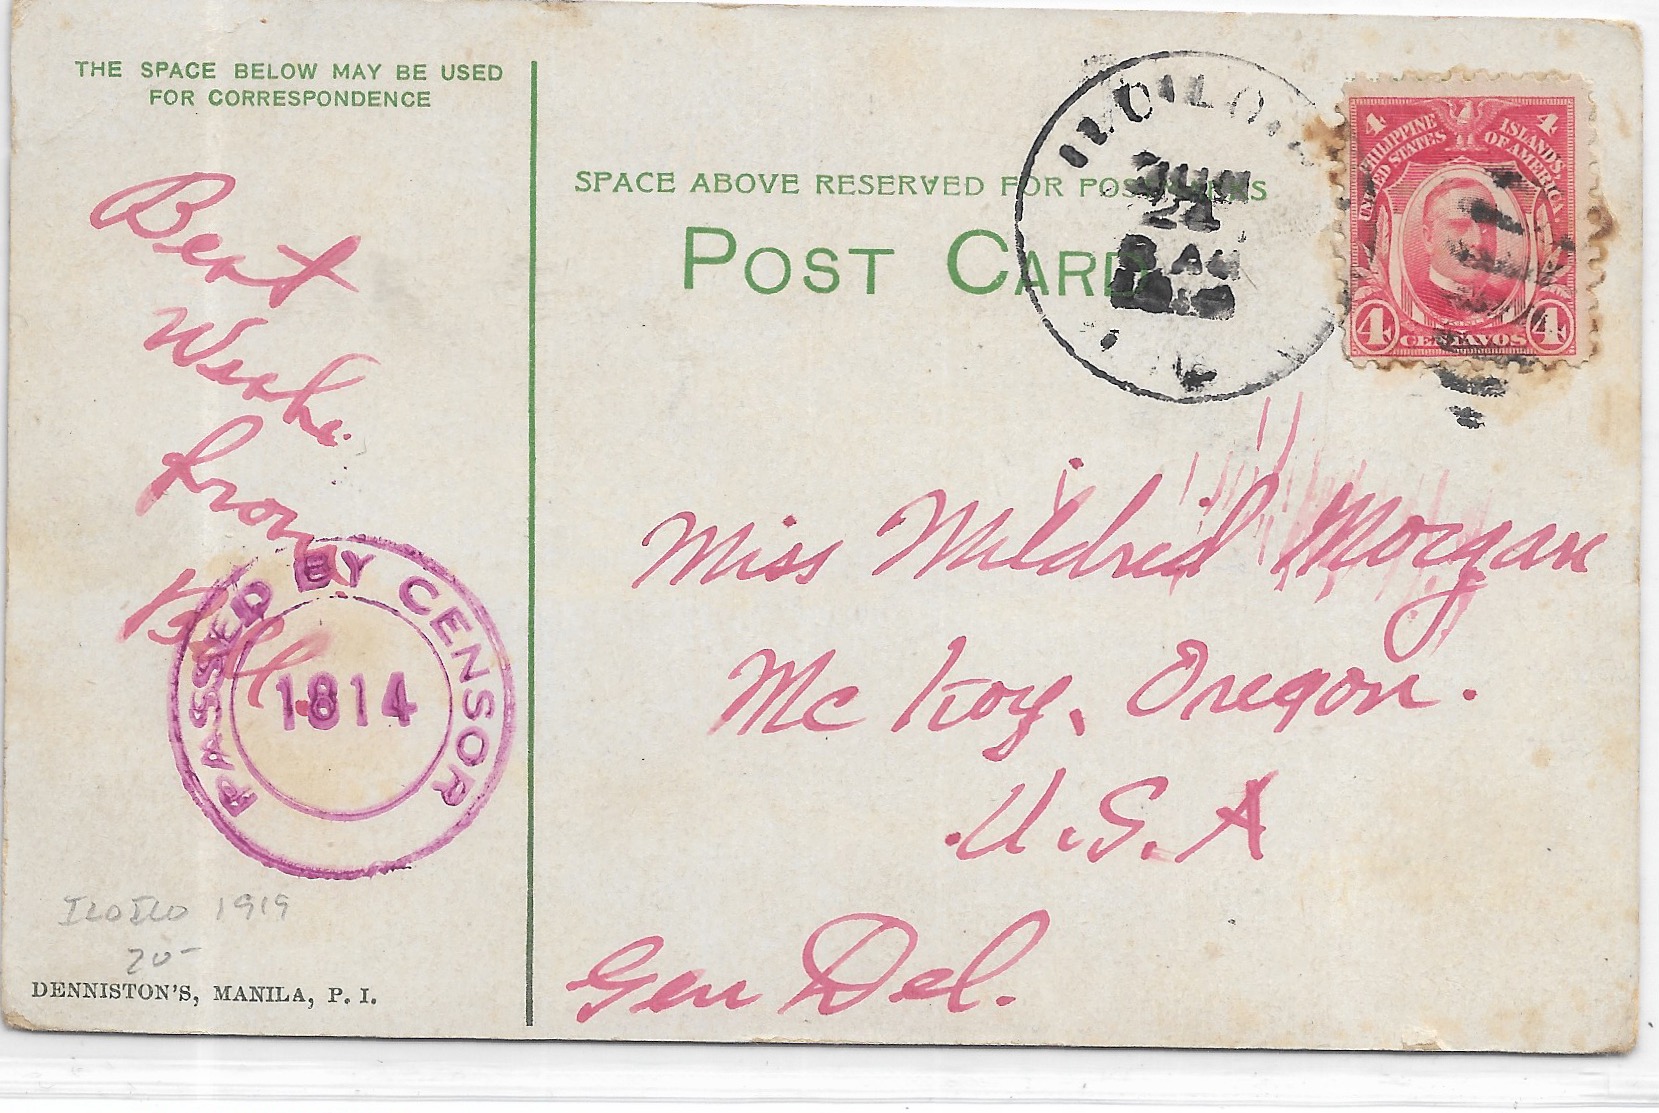 THE SPACE BELOW MAY BE USED
FOR CORRESPONDENCE
Best
Wishe.
from
Bill.
PASSED BY CENSOR
1814
ILOILO 1919
20-
DENNISTON'S, MANILA, P. I.
SPACE ABOVE RESERVED FOR POSTMARKS
POST CARD
ILOILO
JUN
24
8 AM
PHILIPPINE ISLANDS
UNITED STATES OF AMERICA
4 4
4 CENTAVOS 4
Miss Mildred Morgan
Mc Koy, Oregon.
U.S.A
Gen Del.